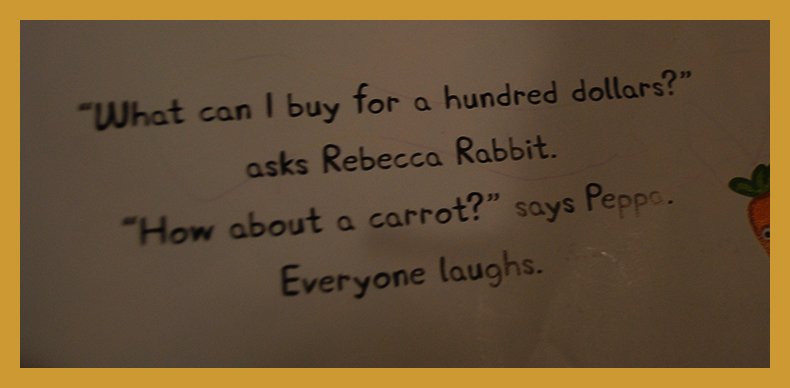 “What can I buy for a hundred dollars?”
asks Rebecca Rabbit.
“How about a carrot?” says Peppa.
Everyone laughs.